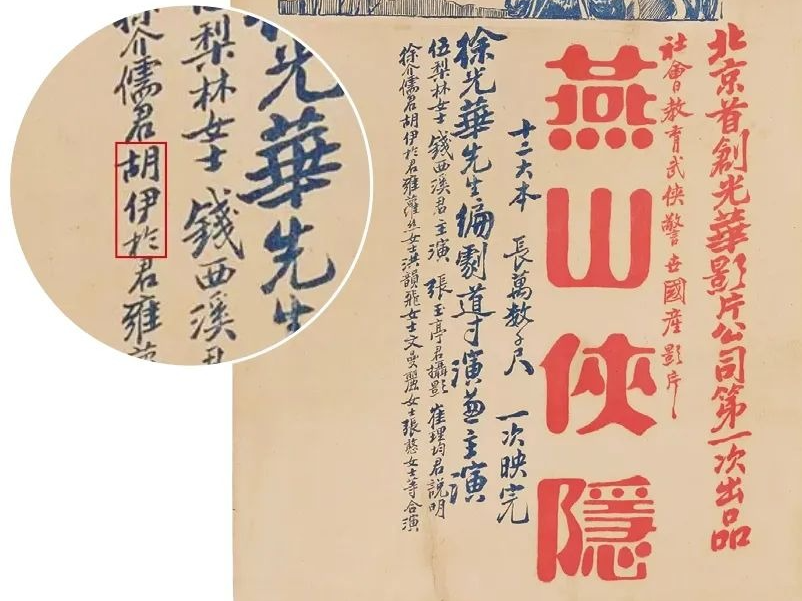 北京首創光華影片公司第一次出品
社會教育武俠警世國產影片
燕山俠隱
十二大本 長萬數千尺 一次映完
徐光華先生編劇導演兼主演
伍梨林女士 錢西溪君主演 張玉亭君攝影 崔理均君說明
徐介儒君胡伊於君雍蘿絲女士洪韻飛女士文曼麗女士張憨女士等合演
光華先生
梨林女士 錢西溪君
介儒君胡伊於君雍